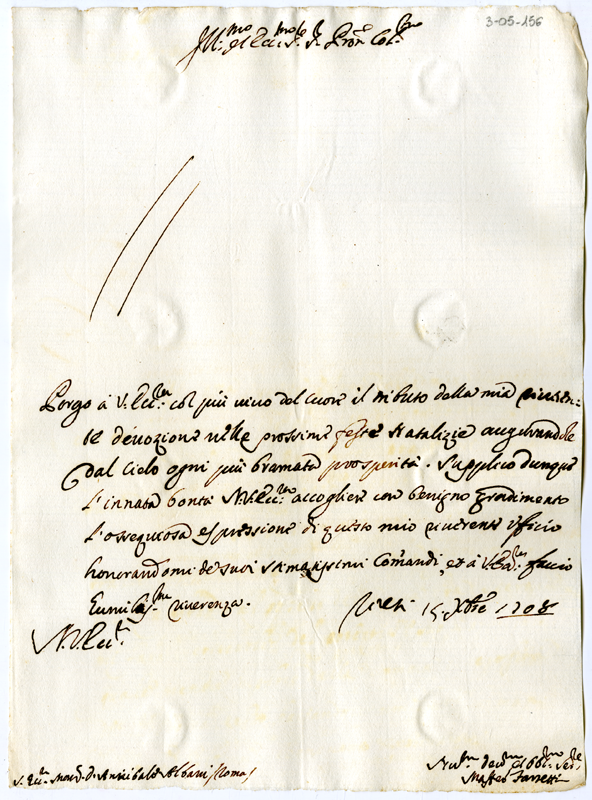 3-05-156
Ill:mo et Ecc:mo S.r S.r Pron Col:mo
Porgo à V. Ecc:za col più vivo del cuore il tributo della mia riveren:
te devozione nelle prossime feste Natalizie augurandole
dal Cielo ogni più bramata prosperità. Supplico dunque
l'innata bontà di V. Ecc:za accogliere con benigno gradimento
l'ossequiosa espressione di questo mio riverente ufficio
honorandomi de suoi stimatissimi Comandi, et à V. Ecc:za faccio
humiliss:ma riverenza.
15 Xbre 1708
Di V. Ecc:za
S. Ecc:za Mons.r D. Annibale Albani (Roma)
Hum:mo Dev:mo et Obbl:mo Ser:re
Matteo